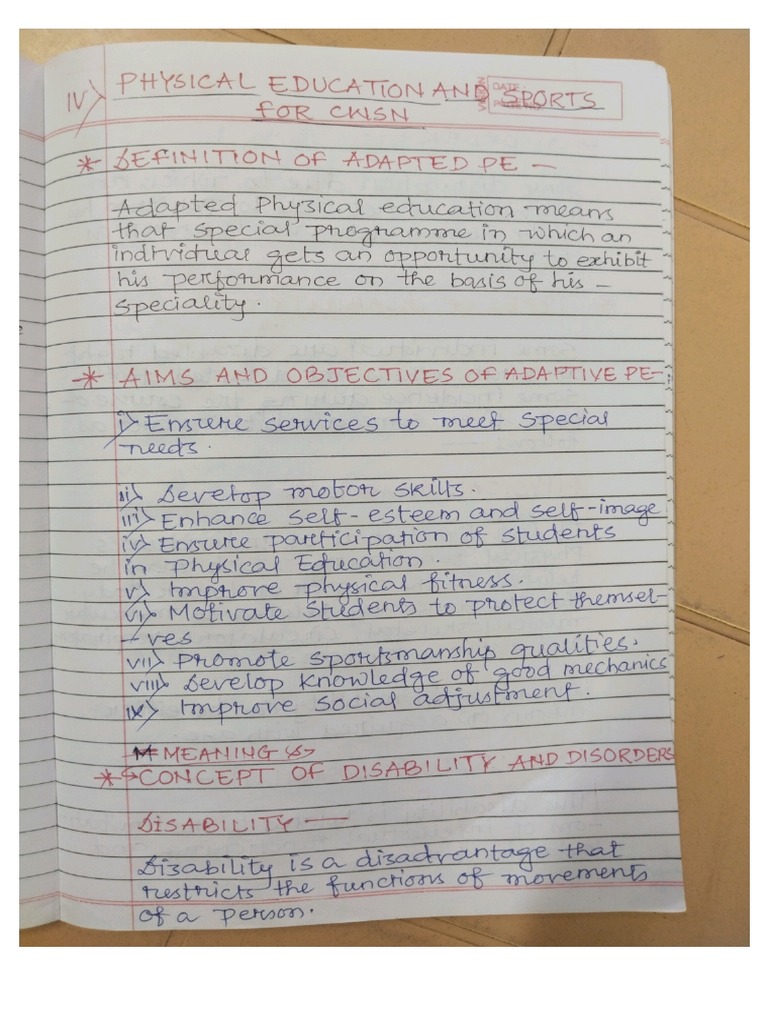 IV) PHYSICAL EDUCATION AND SPORTS
FOR CWSN
* DEFINITION OF ADAPTED PE —
Adapted Physical education means
that special programme in which an
individual gets an opportunity to exhibit
his performance on the basis of his –
speciality.
* AIMS AND OBJECTIVES OF ADAPTIVE PE-:
i) Ensure services to meet special
needs.
ii) Develop motor skills.
iii) Enhance self-esteem and self-image
iv) Ensure participation of students
in Physical Education.
v) Improve physical fitness.
vi) Motivate students to protect themsel-
-ves
vii) Promote sportsmanship qualities.
viii) Develop knowledge of good mechanics
ix) Improve social adjustment.
MEANING &
* CONCEPT OF DISABILITY AND DISORDERS
DISABILITY —
Disability is a disadvantage that
restricts the functions of movements
of a person.